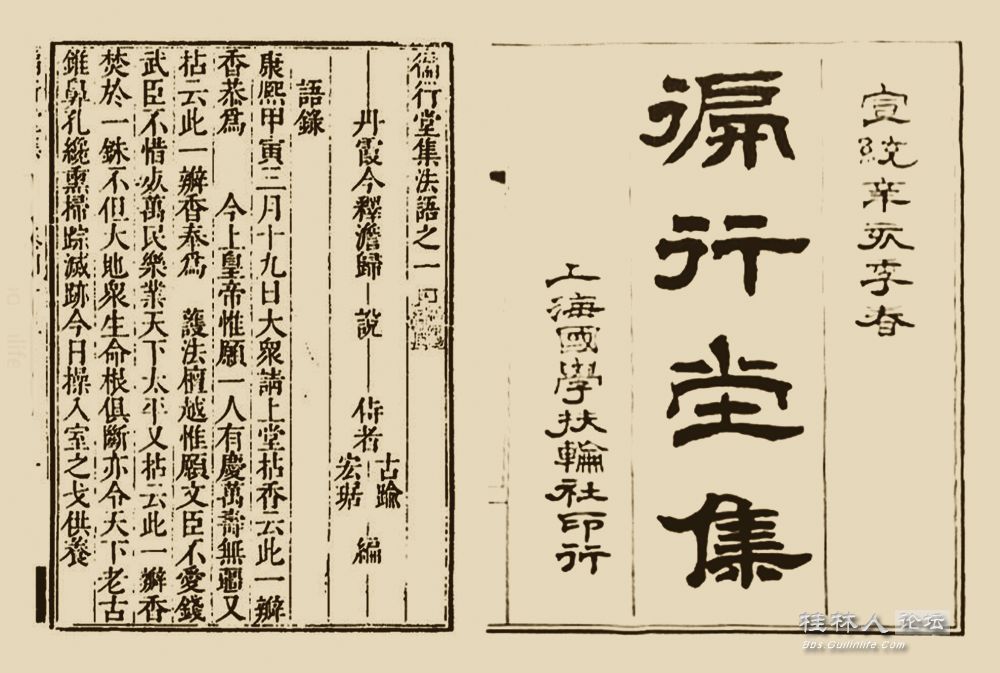 宣統辛亥季春
徧行堂集
上海國學扶輪社印行
徧行堂集法語之一
丹霞今釋澹歸說 侍者 古踰 宏琚 編
語錄
康熙甲寅三月十九日大衆請上堂拈香云此一瓣
香恭爲 今上皇帝惟願一人有慶萬壽無疆又
拈云此一瓣香奉爲 護法檀越惟願文臣不愛錢
武臣不惜死萬民樂業天下太平又拈云此一瓣香
焚於一銖不但大地衆生命根俱斷亦令天下老古
錐鼻孔纔熏掃踪滅跡今日操入室之戈供養
桂林人论坛
Bbs.Guilinlife.com